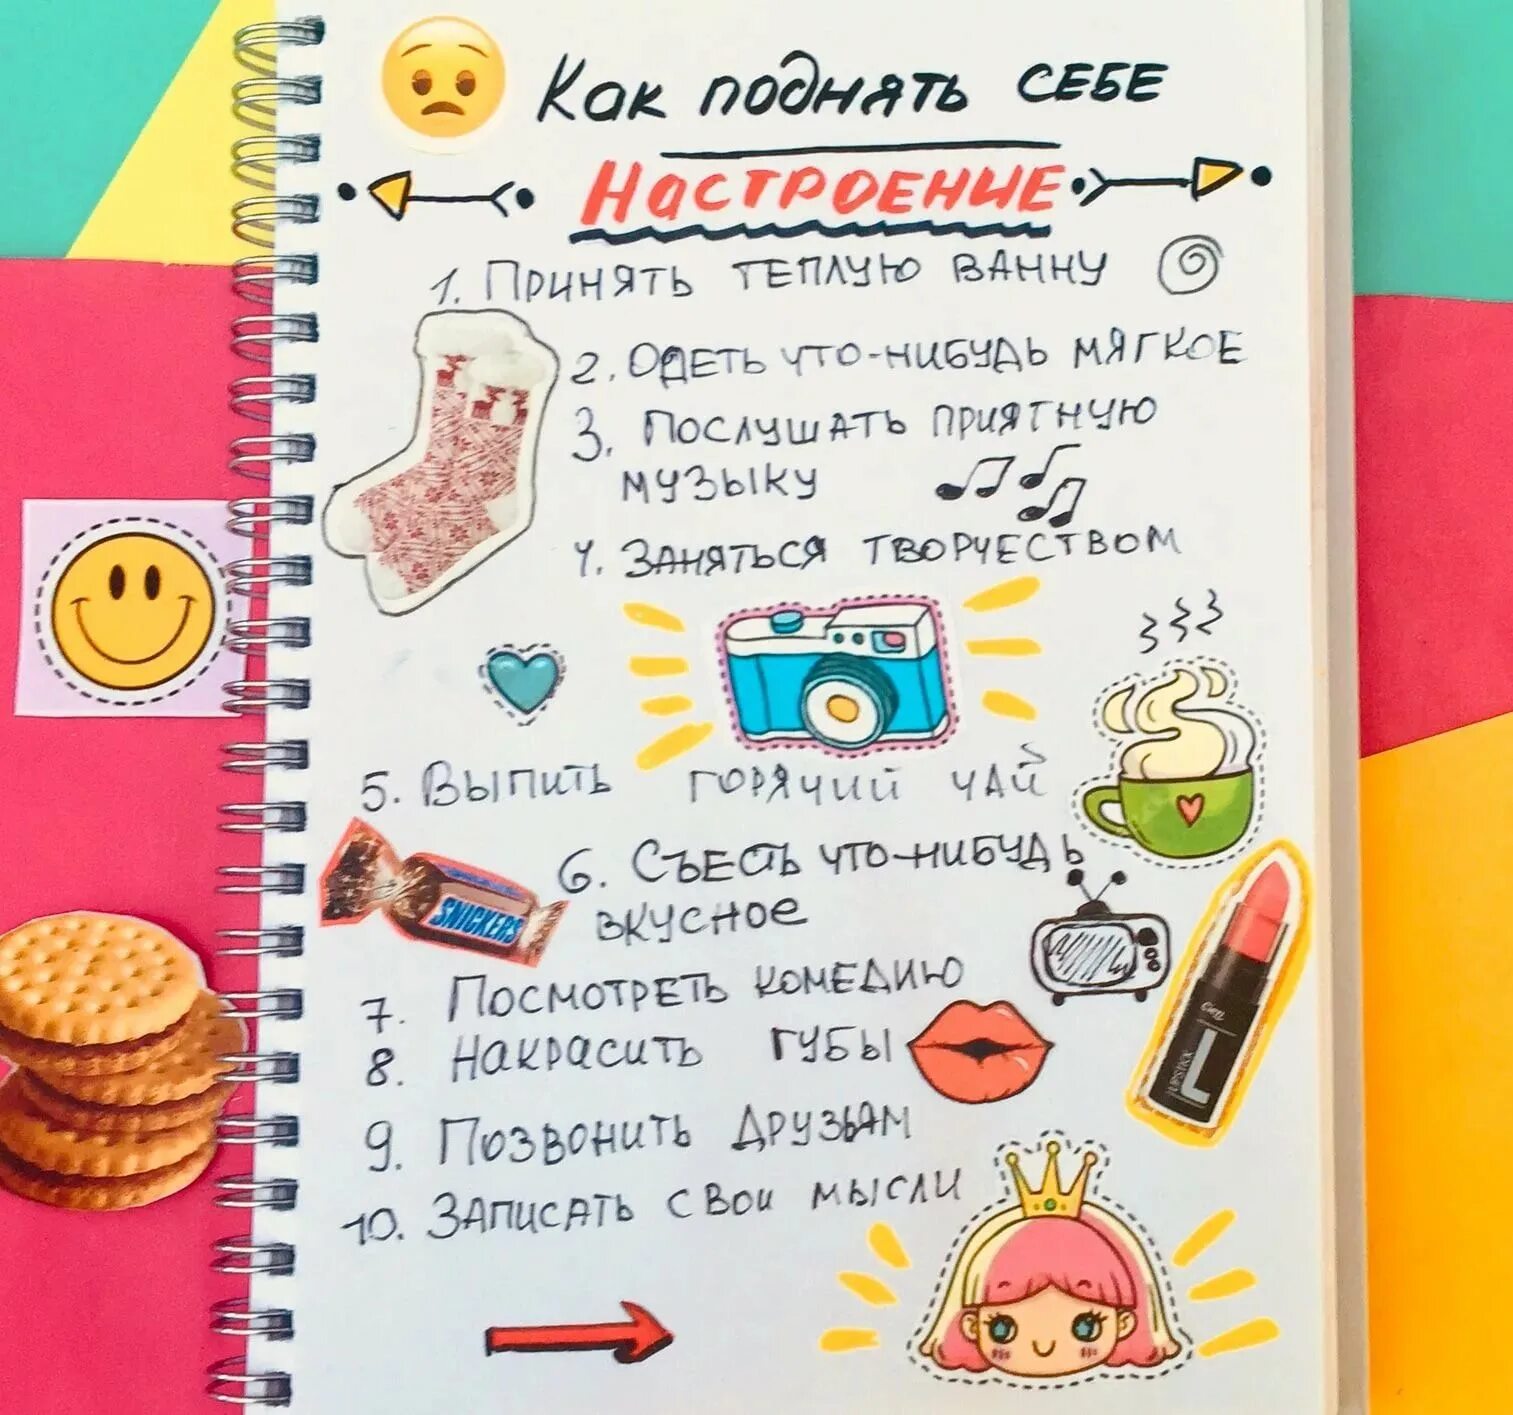 Как поднять СЕБЕ
НАСТРОЕНИЕ
1. Принять теплую ванну
2. Одеть что-нибудь мягкое
3. Послушать приятную
музыку
4. Заняться творчеством
5. Выпить горячий чай
6. Съесть что-нибудь
вкусное
SNICKERS
7. Посмотреть комедию
8. Накрасить губы
LIPSTICK
L
9. Позвонить друзьям
10. Записать свои мысли